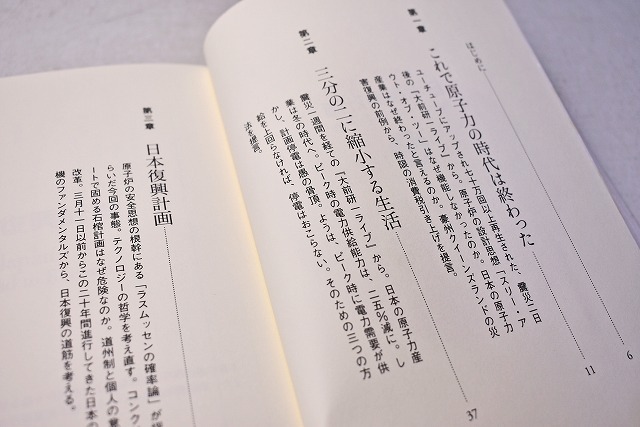 はじめに 6
第一章 これで原子力の時代は終わった 11
ユーチューブにアップされ七十万回以上再生された、震災二日
後の「大前研一ライブ」から。原子炉の設計思想「スリー・ア
ウト・オブ・ツー」はなぜ機能しなかったのか。日本の原子力
産業はなぜ終わったと言えるのか。豪州クイーンズランドの災
害復興の前例から、時限の消費税引き上げを提言。
第二章 三分の二に縮小する生活 37
震災一週間を経ての「大前研一ライブ」から。日本の原子力産
業は冬の時代へ。ピーク時の電力供給能力は、二五%減に。し
かし、計画停電は愚の骨頂。ようは、ピーク時に電力需要が供
給を上回らなければ、停電はおこらない。そのための三つの方
法を提言。
第三章 日本復興計画
原子炉の安全思想の根幹にある「ラスムッセンの確率論」が
らいだ今回の事態。テクノロジーの哲学を考え直す。コンク
ートで固める石棺計画はなぜ危険なのか。道州制と個人の意
改革。三月十一日以前からこの二十年間進行してきた日本の
機のファンダメンタルズから、日本復興の道筋を考える。